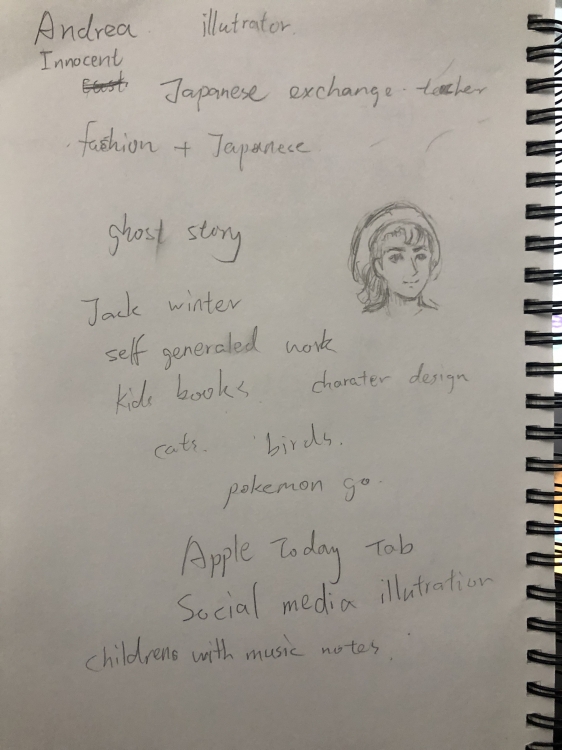 Andrea illutrator.
Innocent
Japanese exchange teacher
fashion + Japanece
ghost story
Jack winter
self generated work
kids books charater design
cats. birds.
pokemon go.
Apple Today Tab
Social media illutration
childrens with music notes.